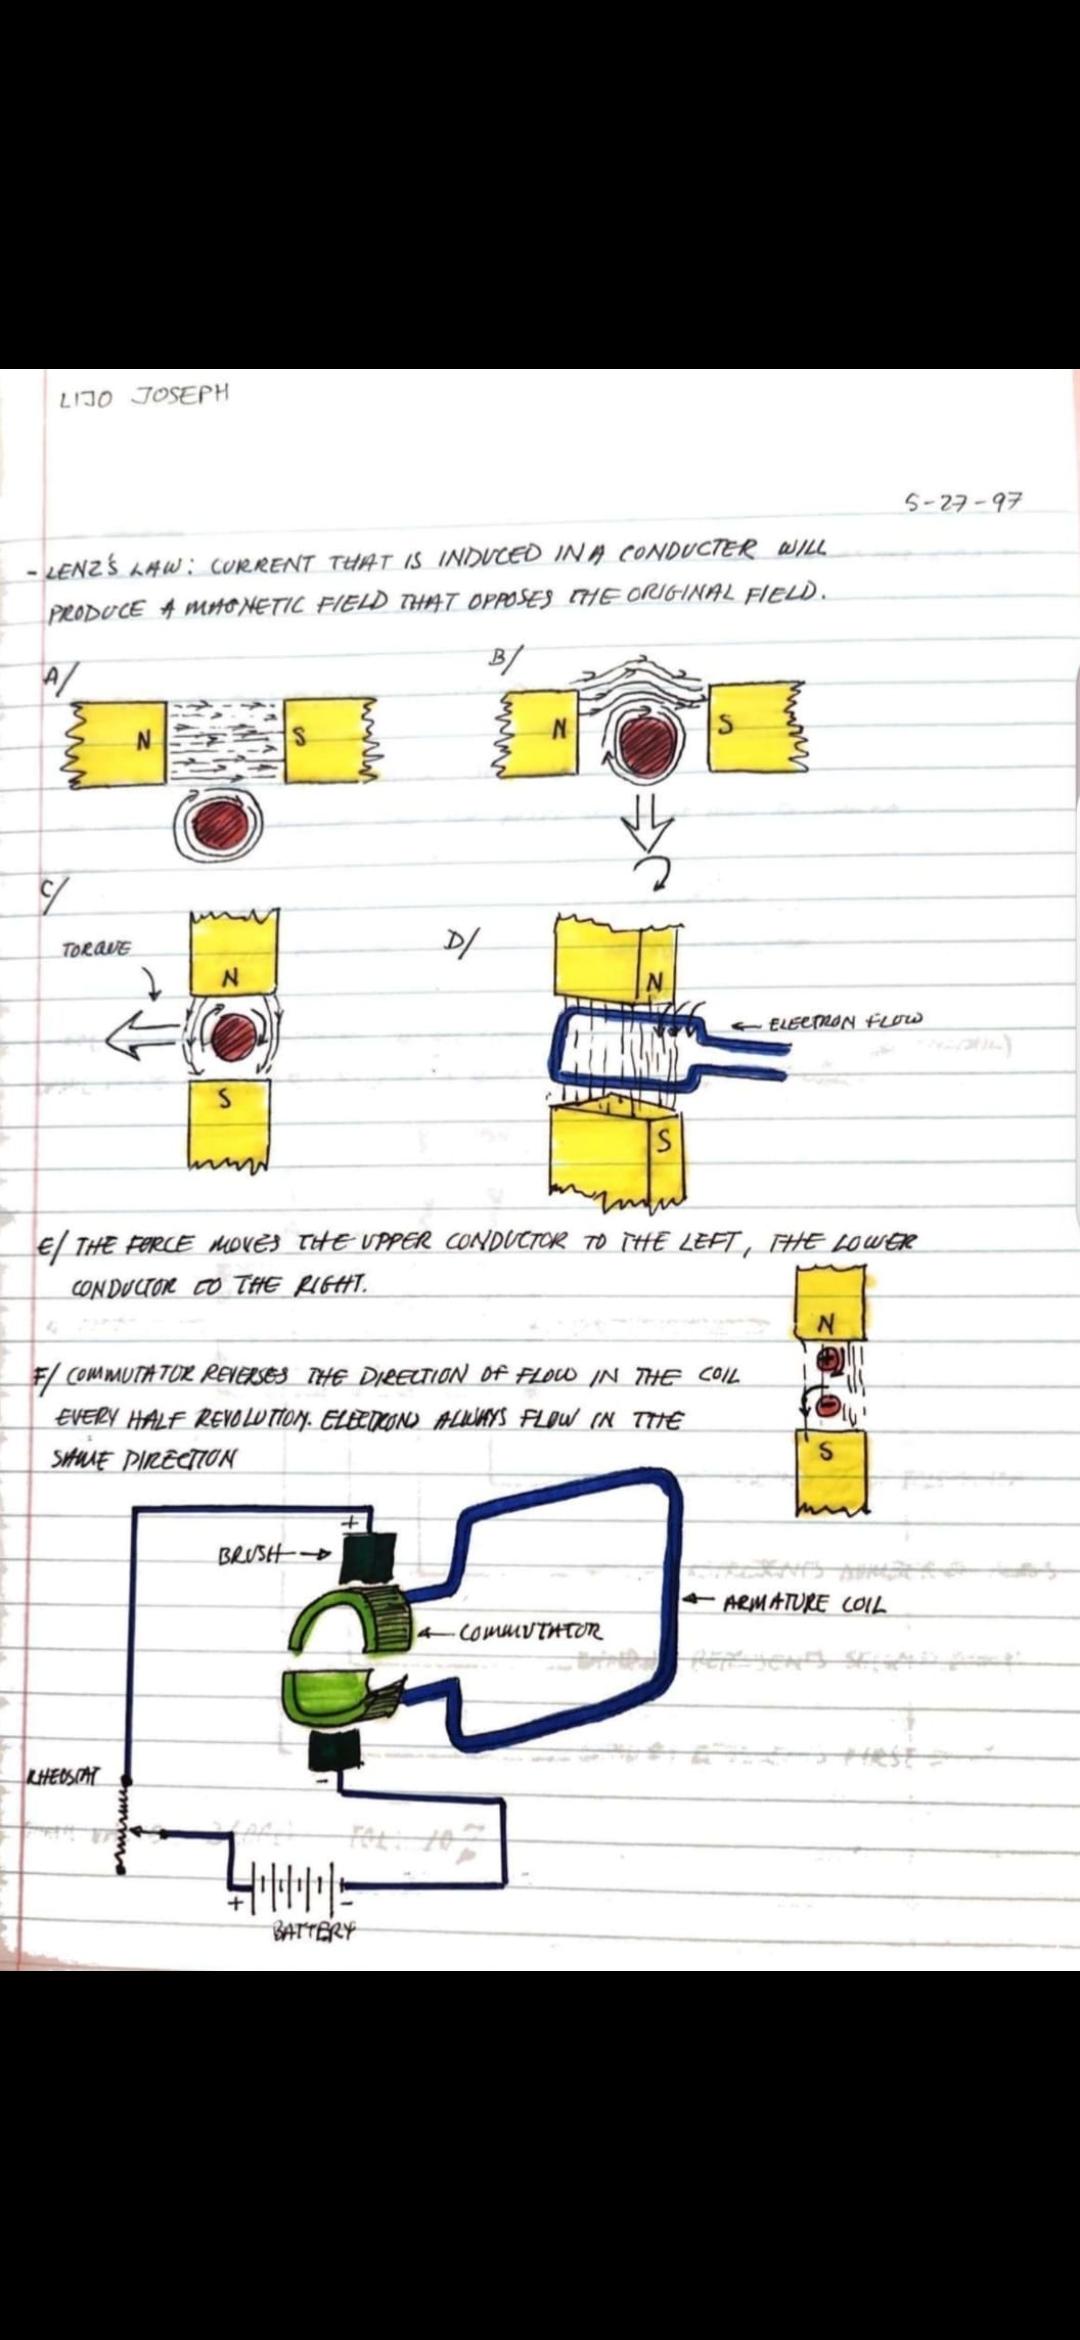 LIJO JOSEPH
5-27-97
- LENZ'S LAW: CURRENT THAT IS INDUCED IN A CONDUCTER WILL
PRODUCE A MAGNETIC FIELD THAT OPPOSES THE ORIGINAL FIELD.
A/
N
S
B/
N
S
C/
TORQUE
N
S
D/
N
ELECTRON FLOW
S
E/ THE FORCE MOVES THE UPPER CONDUCTOR TO THE LEFT, THE LOWER
CONDUCTOR TO THE RIGHT.
N
+
-
S
F/ COMMUTATOR REVERSES THE DIRECTION OF FLOW IN THE COIL
EVERY HALF REVOLUTION. ELECTRONS ALWAYS FLOW IN THE
SAME DIRECTION
+
BRUSH
COMMUTATOR
ARMATURE COIL
-
RHEOSTAT
+
-
BATTERY